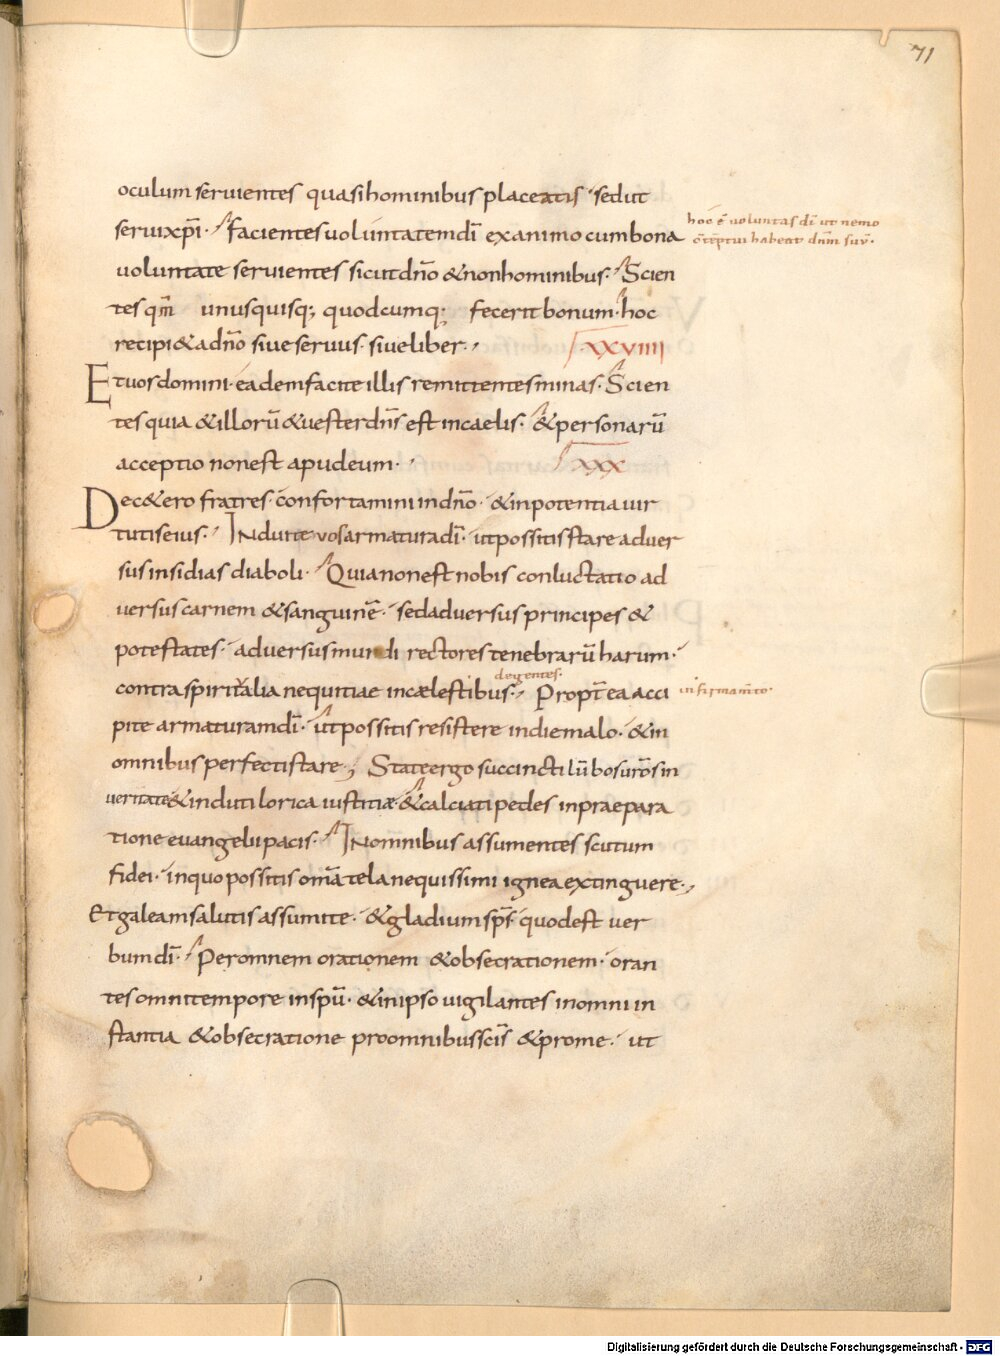 71
oculum seruientes quasi hominibus placeatis · sed ut
serui xp̄i · facientes uoluntatem dī ex animo cum bona
hoc ē uoluntas dī ut nemo
uoluntate seruientes sicut dn̄o & non hominibus · Scien
tes qm̄ unusquisq; quodcumq; fecerit bonum · hoc
recipi& a dn̄o siue seruus · siue liber ·
XXVIIII
Et uos domini · eadem facite illis remittentes minas · Scien
tes quia & illorū & uester dn̄s est in caelis · & personarū
acceptio non est apud eum ·
XXX
De c&ero fratres · confortamini in dn̄o · & in potentia uir
tutis eius · Induite vos armatura dī · ut possitis stare aduer
sus insidias diaboli · Quia non est nobis conluctatio ad
uersus carnem & sanguinē · sed aduersus principes &
potestates · aduersus mundi rectores tenebrarū harum ·
degentes ·
contra spiritalia nequitiae in cælestibus · Propt̄ ea acci
in firmam̄to ·
pite armaturam dī · ut possitis resistere in die malo · & in
omnibus perfecti stare ; State ergo succincti lūbos uros̄ in
ueritate & induti lorica iustitiæ · & calciati pedes in praepara
tione euangelii pacis · In omnibus assumentes scutum
fidei · in quo possitis om̄a tela nequissimi ignea extinguere ·
Et galeam salutis assumite · & gladium sp̄s · quod est uer
bum dī · Per omnem orationem & obsecrationem · oran
tes omni tempore in spū · & in ipso uigilantes in omni in
stantia & obsecratione pro omnibus scīs & pro me · ut
Digitalisierung gefördert durch die Deutsche Forschungsgemeinschaft - DFG